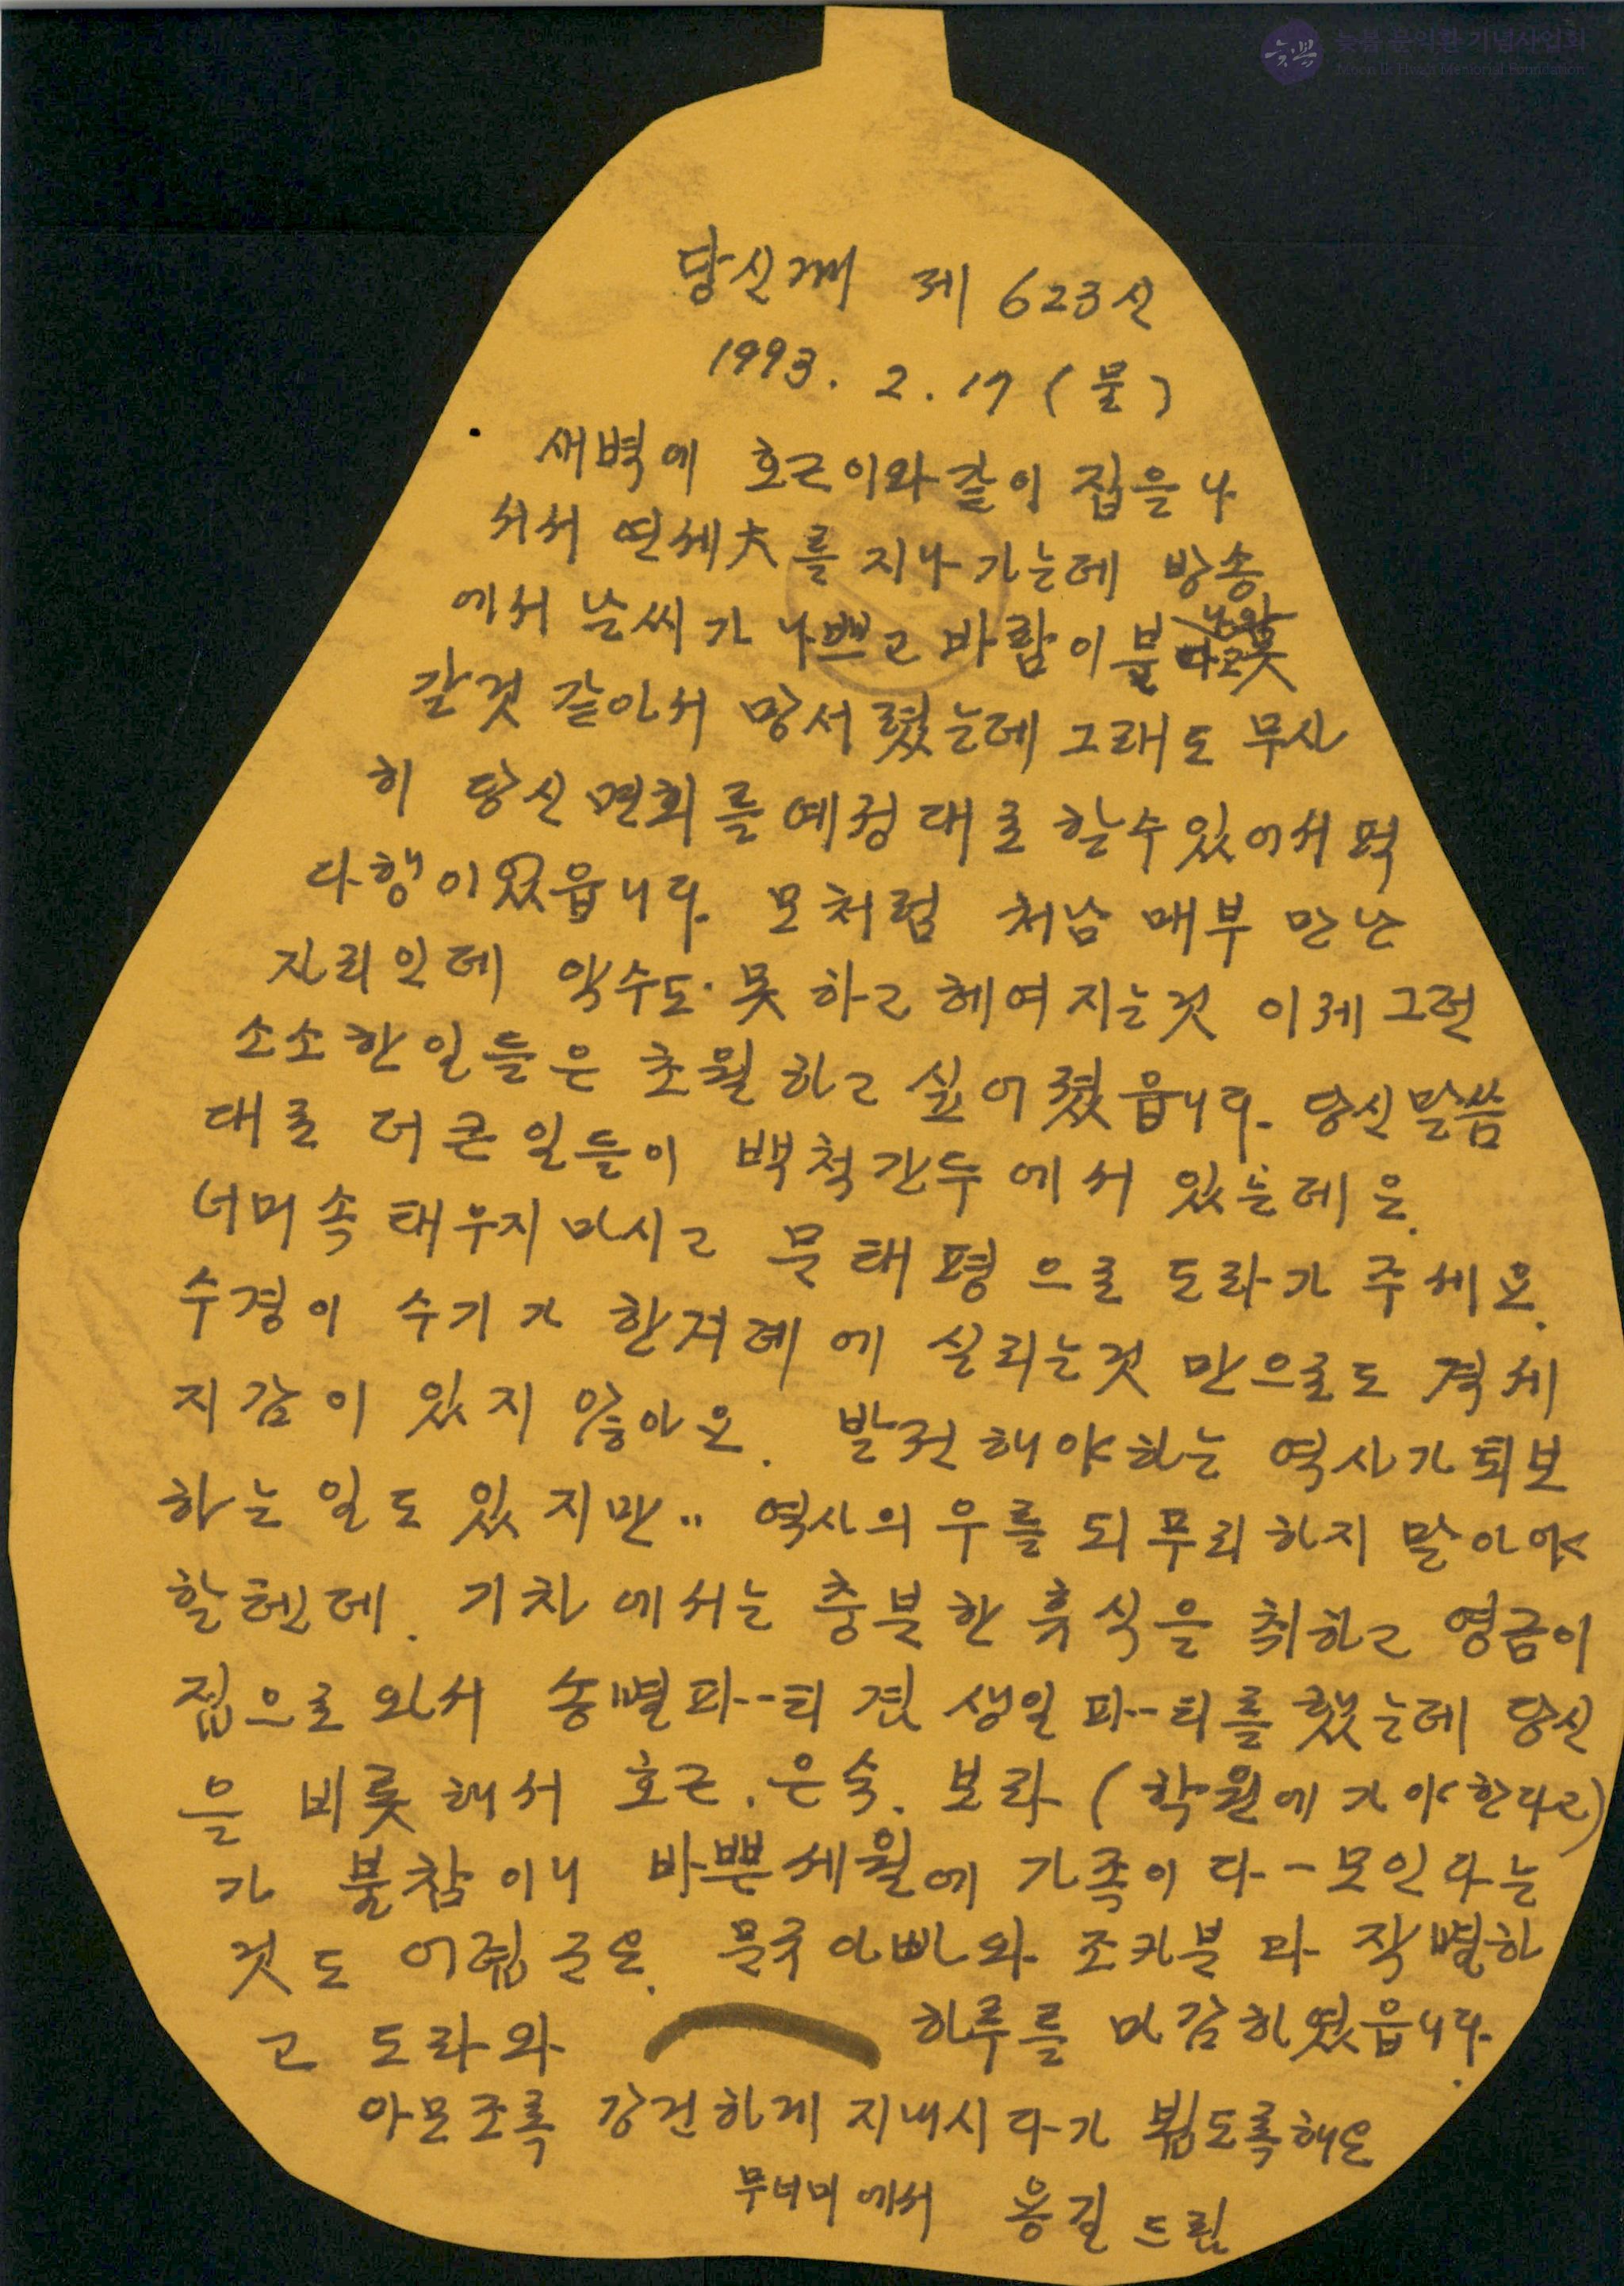 늦봄 문익환 기념사업회
Moon Ik Hwan Memorial Foundation
당신께 제 623신
1993. 2. 17 (물)
새벽에 호근이와 같이 집을 나
서서 연세大를 지나가는데 방송
에서 날씨가 나쁘고 바람이 불 못
갈것 같아서 망서렸는데 그래도 무사
히 당신 면회를 예정대로 할수있어서 퍽
다행이였읍니다. 모처럼 처남 매부 만난
자리인데 악수도 못 하고 헤여지는것 이제 그런
소소한일들은 초월하고 싶어졌읍니다. 당신말씀
대로 더 큰 일들이 백척간두에 서 있는데요.
너머 속 태우지 마시고 문태평으로 도라가 주세요.
수경이 수기가 한겨레에 실리는것 만으로도 격세
지감이 있지 않아요. 발전해야하는 역사가 퇴보
하는 일도 있지만‥ 역사의 우를 되푸리하지 말아야
할텐데. 기차에서는 충분한 휴식을 취하고 영금이
집으로 와서 송별파--티 겸 생일 파--티를 했는데 당신
을 비롯해서 호근. 은숙. 보라 (학원에 가야한다고)
가 불참이니 바쁜세월에 가족이 다-모인다는
것도 어렵군요. 문국아빠와 조카분과 작별하
고 도라와 하루를 마감하였읍니다.
아모조록 강건하게 지내시다가 뵙도록해요
무너미에서 용길 드림